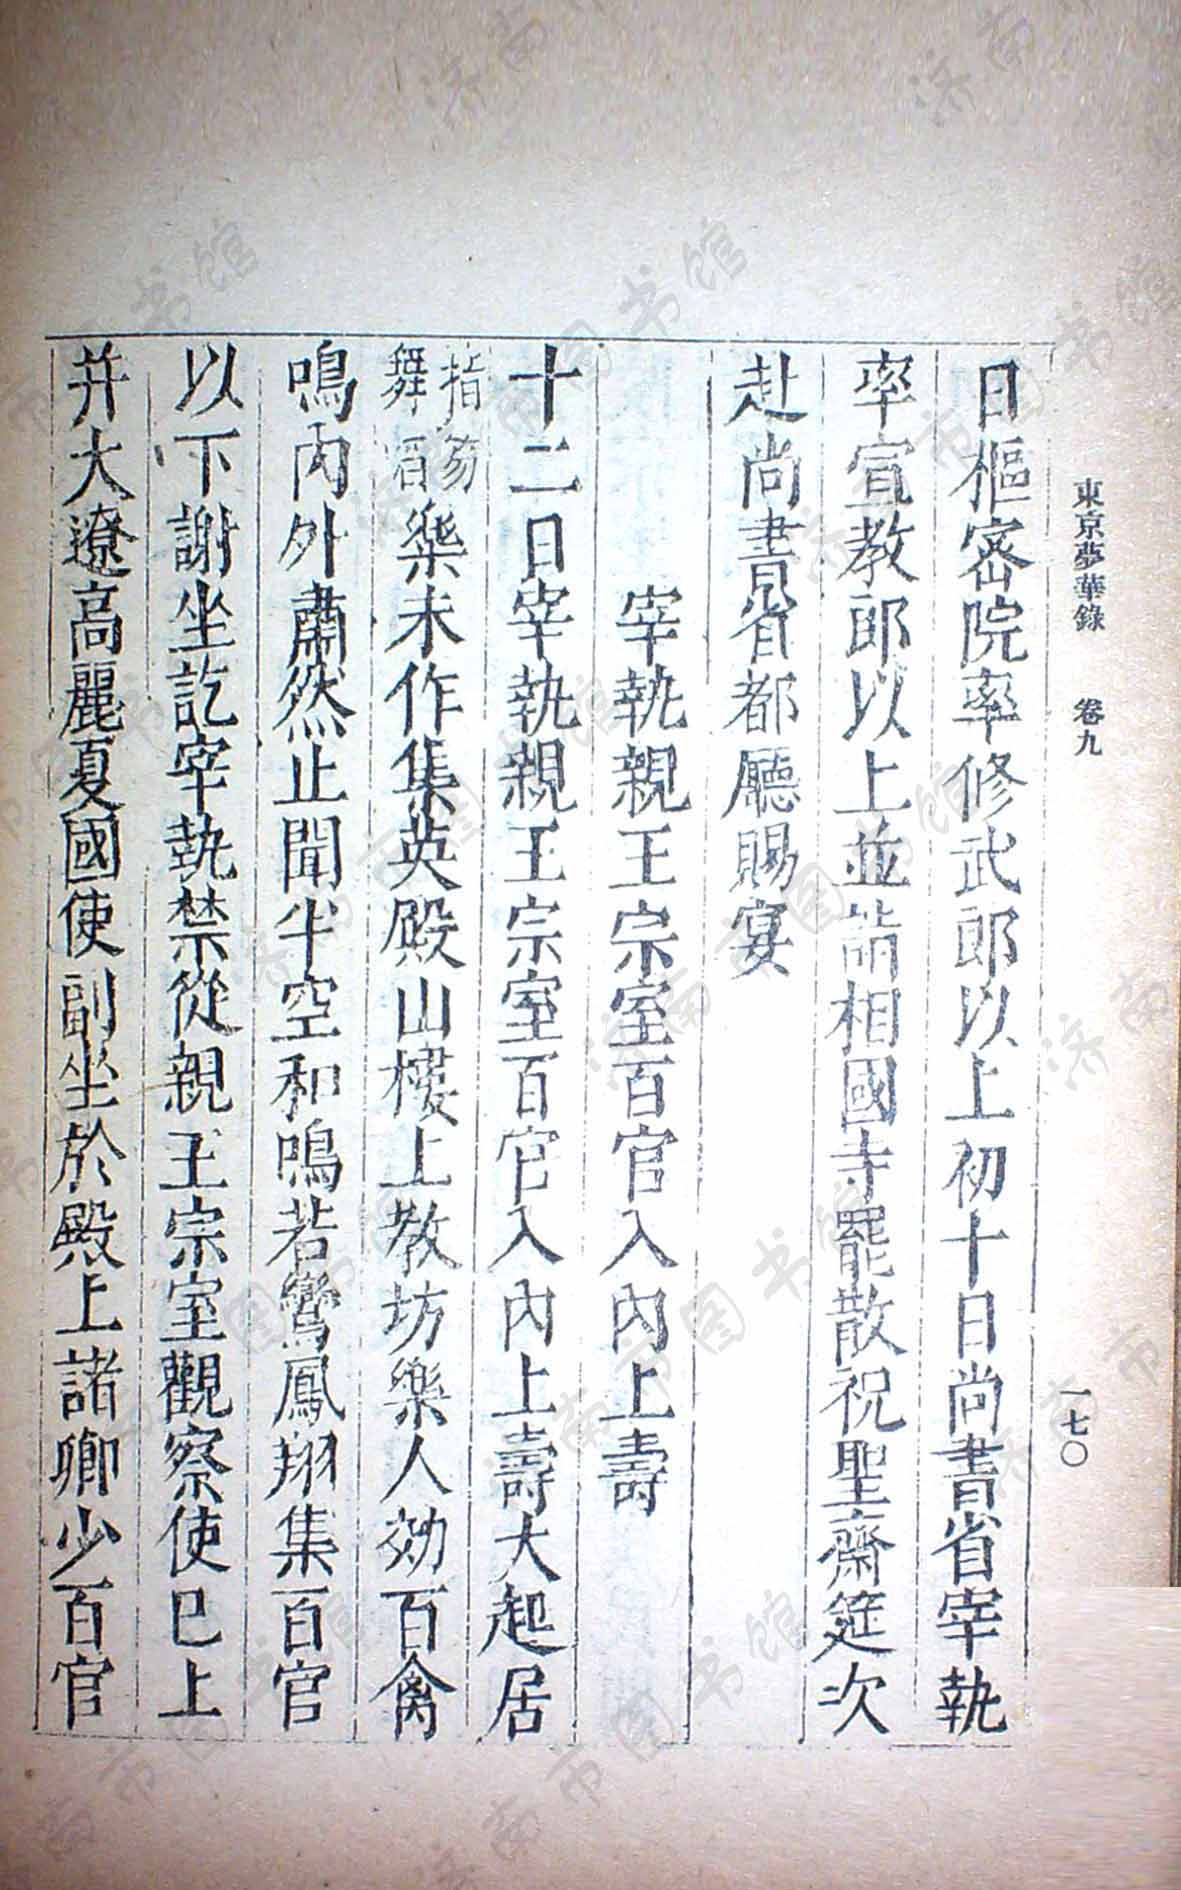 東京夢華錄 卷九 一七〇
日樞密院率修武郎以上初十日尚書省宰執
率宣教郎以上並詣相國寺罷散祝聖齋筵次
赴尚書省都廳賜宴
宰執親王宗室百官入內上壽
十二日宰執親王宗室百官入內上壽大起居
指笏舞蹈樂未作集英殿山樓上教坊樂人効百禽
鳴內外肅然止聞半空和鳴若鸞鳳翔集百官
以下謝坐訖宰執禁從親王宗室觀察使已上
并大遼高麗夏國使副坐於殿上諸卿少百官
济南市图书馆